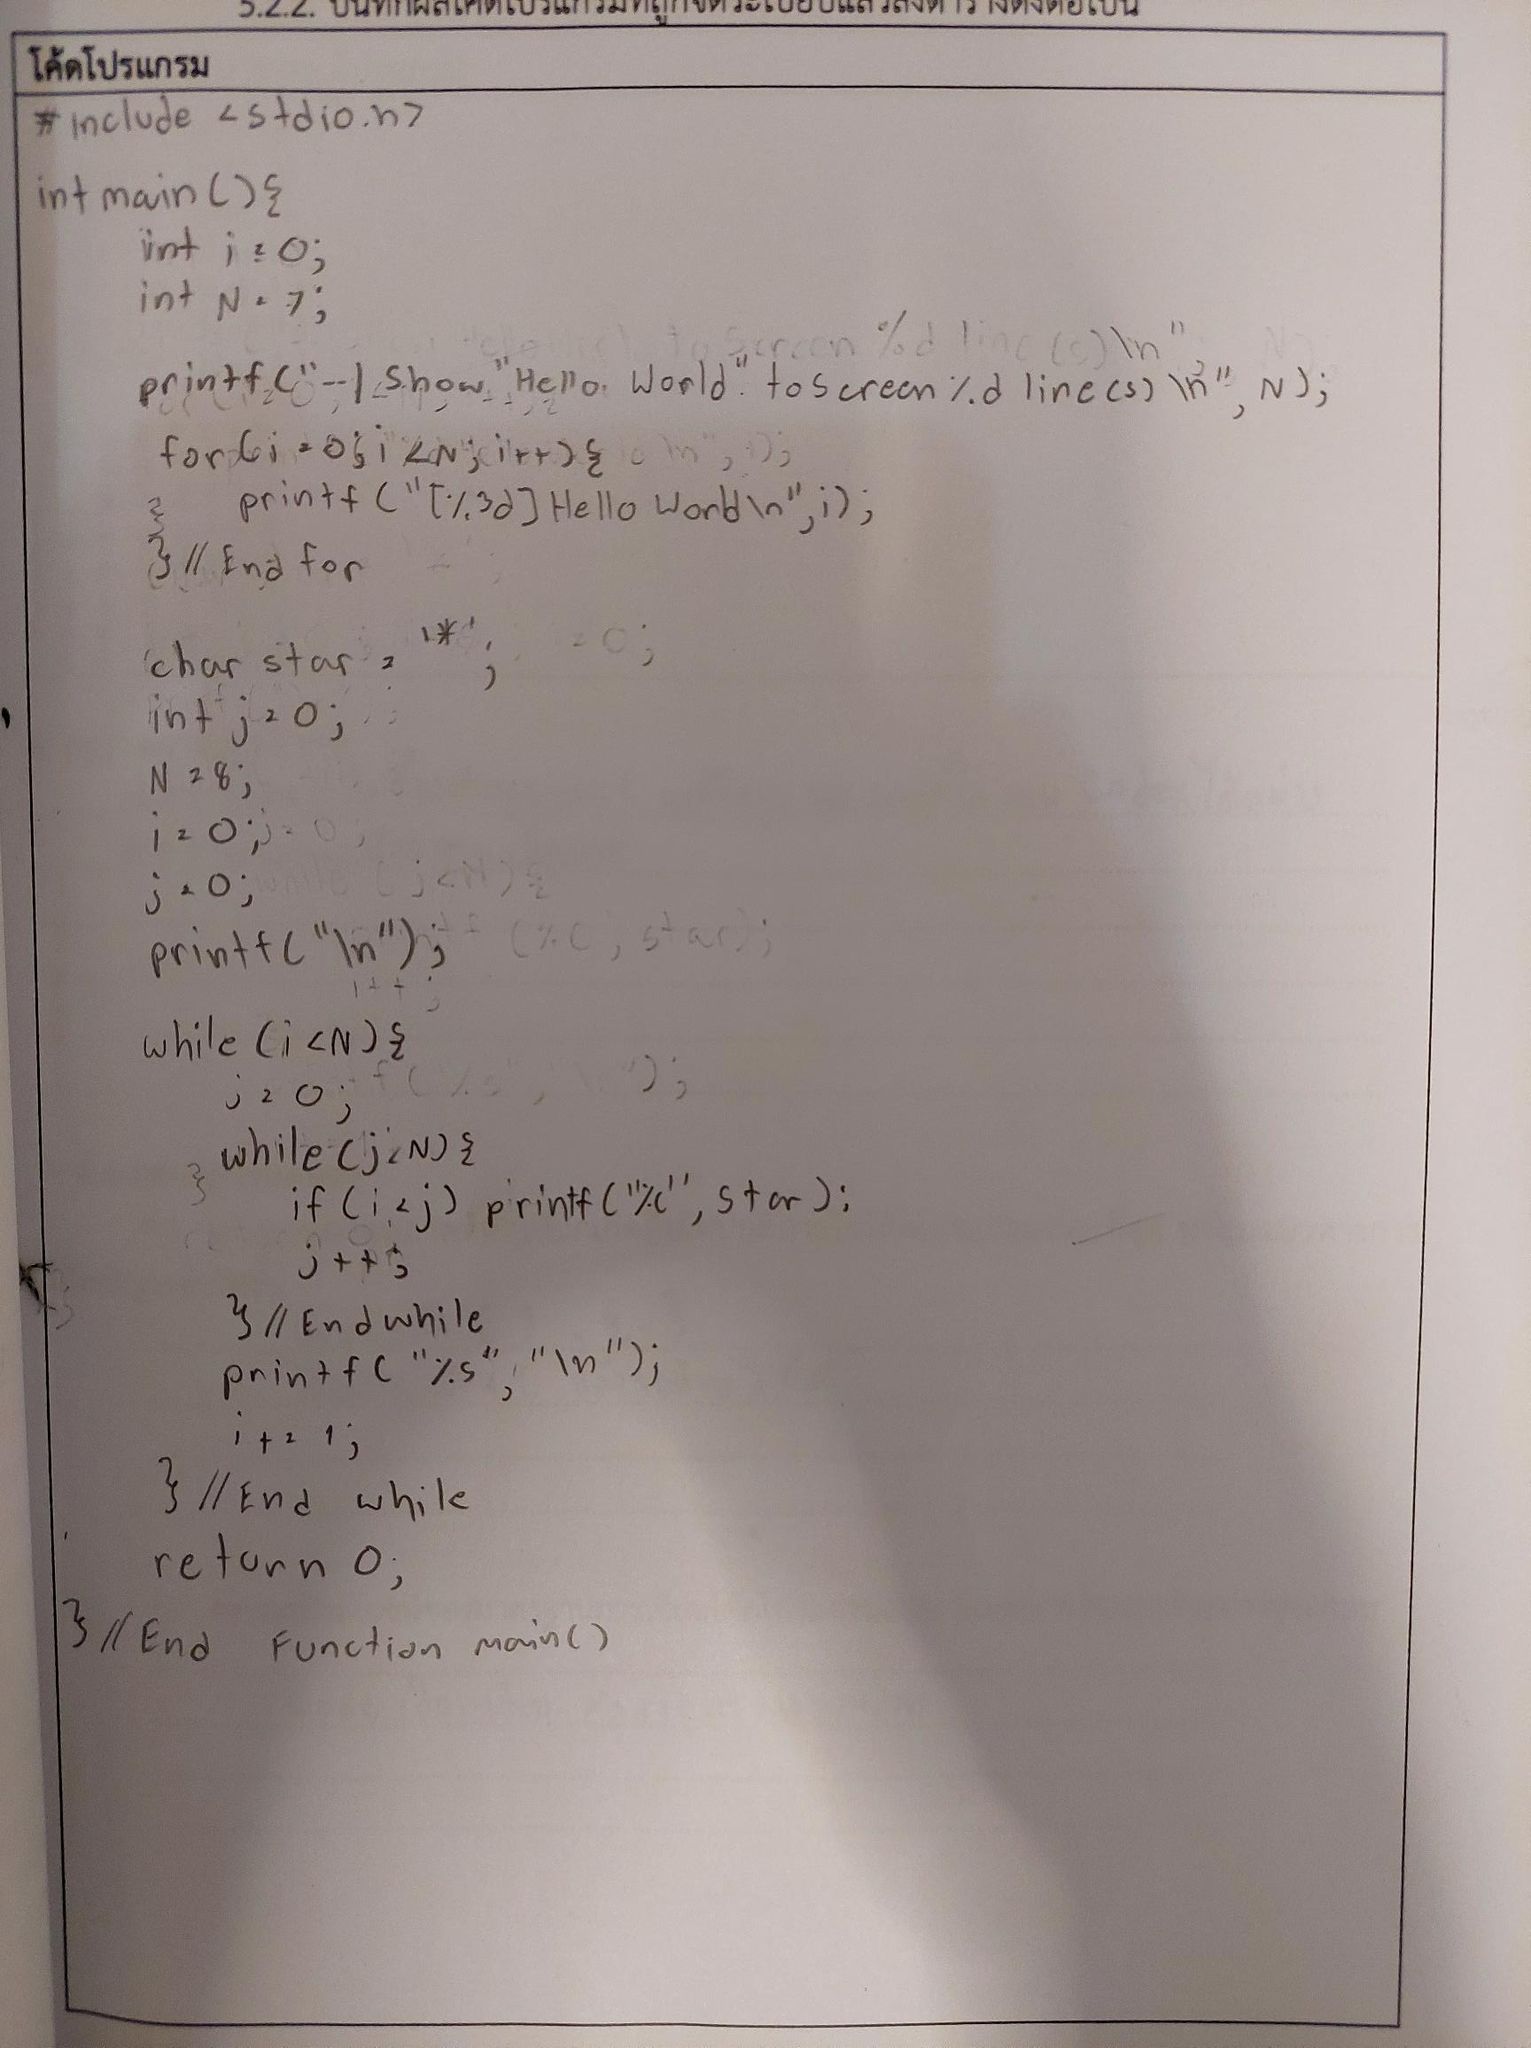 5.2.2. บันทึกผลโค้ดโปรแกรมที่ถูกจัดระเบียบแล้วลงตารางดังต่อไปนี้
โค้ดโปรแกรม
#include <stdio.h>
int main(){
int i = 0;
int N = 7;
printf("--| Show "Hello World" to Screen %d line(s) \n", N);
for(i = 0; i < N; i++){
printf("[%3d] Hello World\n", i);
} // End for
char star = '*';
int j = 0;
N = 8;
i = 0;
j = 0;
printf("\n");
while (i < N){
j = 0;
while (j < N){
if (i < j) printf("%c", star);
j++;
} // End while
printf("%s", "\n");
i += 1;
} // End while
return 0;
} // End Function main()